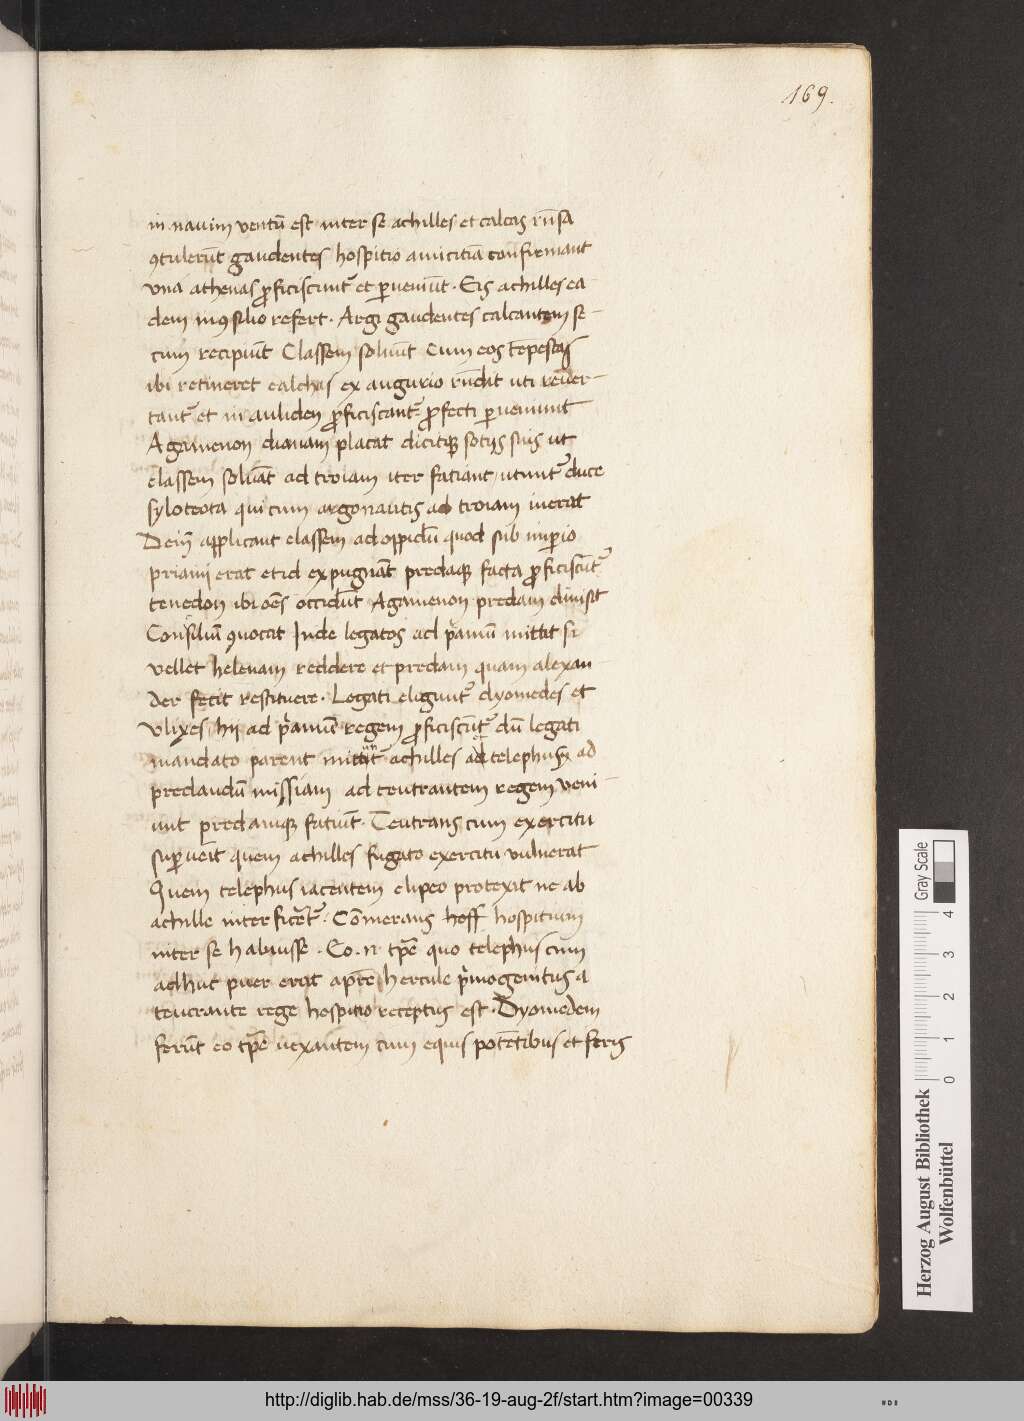 169.
in navim ventū est inter se achilles et calcas rūsa
ꝯtulerūt gaudentes hospitio amicitiā confirmant
vna athenas ꝓficiscunt᷑ et ꝑveniūt. Eis achilles ea
dem in ꝯsilio refert. Argi gaudentes calcantem se-
cum recipiūt Classem solvūt Cum eos tēpestas
ibi retineret calchas ex augurio rūdit uti rever-
tant᷑ et in auliden ꝓficiscant᷑ ꝓfecti ꝑveniunt
Agamenon dianam placat dicitqꝫ sociis suis ut
classem solvāt ad troiam iter faciant utunt᷑ duce
syloteota qui cum argonautis ad troiam inerat
Dein applicant classem ad oppidū quod sub imꝑio
priami erat et id expugnāt predaqꝫ facta ꝓficiscūt᷑
tenedon ibi oēs occidūt Agamenon predam divisit
Consiliū ꝯvocat Inde legatos ad pͥamū mittit si
vellet helenam reddere et predam quam alexan
der fecit restituere. Legati eligunt᷑ dyomedes et
vlixes hii ad pͥamū regem ꝓficiscūt᷑ dū legati
mandato parent mittūt achilles ad telephus ad
predandū missiam ad teutrantem regem veni
unt predamqꝫ faciūt. Teutrans cum exercitu
suꝑveīt quem achilles fugato exercitu vulnerat
Quem telephus iacentem clipeo protexit ne ab
achille interficeret᷑. Cōmerans hoff hospitium
inter se habuisse. Eo .n. tp̄e quo telephus cum
adhuc puer erat a pr̄e hercule pͥmogenitus a
teucrante rege hospitio receptus est. Dyomedem
ferūt eo tp̄e vexantem cum equis potētibus et feris
Gray Scale
0 1 2 3 4
Herzog August Bibliothek
Wolfenbüttel
http://diglib.hab.de/mss/36-19-aug-2f/start.htm?image=00339